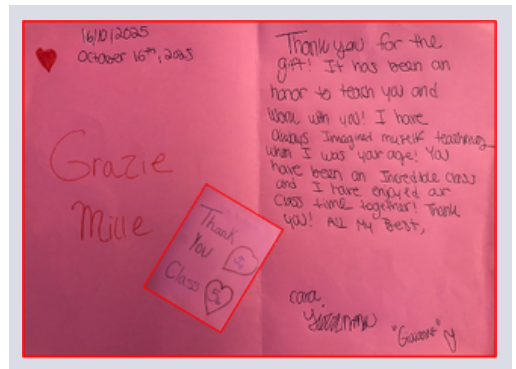 16/10/2025
October 16th, 2025
Grazie
Mille
Thank
You
Class
Thank you for the
gift! It has been an
honor to teach you and
work with you! I have
always Imagined myself teaching
when I was your age! You
have been an Incredible class
and I have enjoyed our
class time together! Thank
you! All My Best,
cara,